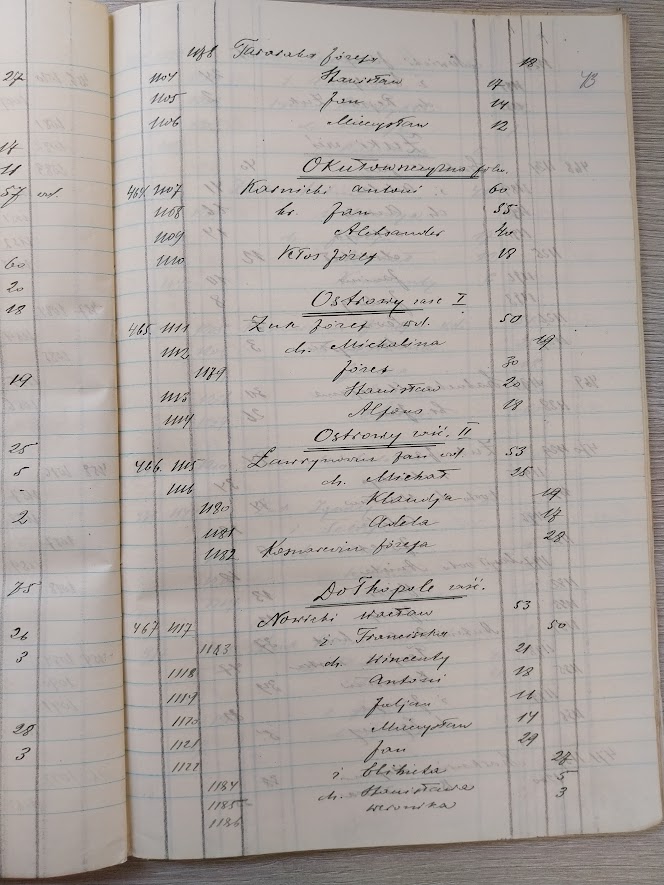 27 1178 Taraseba Józefa 18
1104 Stanisław 17 43
1105 Jan 14
1106 Mieczysław 12
17
11 Okułowszczyzna folw.
57 wł. 464. 1107 Karnicki Antoni 60
1108 br. Jan 55
1109 Aleksander 40
60 1110 Kłos Józef 18
20
18 Ostrowy zaśc I
465. 1111 Żuk Józef wł. 50
1112 ch. Michalina 19
19 1179 Józef 30
1113 Stanisław 20
1114 Alfons 18
25 Ostrowy zaść. II
5 466. 1115 Ławrynowicz Jan wł. 53
1116 ch. Michał 25
2 1180 Klaudja 19
1181 Adela 17
1182 Komarewicz Józefa 28
75 Dołhopole zaść.
26 467 1117 Nowicki Wacław 53
3 1183 ż Franciszka 50
1118 ch. Wincenty 21
1119 Antoni 18
28 1120 Juljan 16
3 1121 Mieczysław 14
1122 Jan 29
1184 ż Elżbieta 27
1185 ch. Stanisława 5
1186 Weronika 3